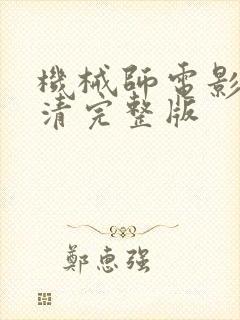 機械師電影
清完整版
鄭惠強